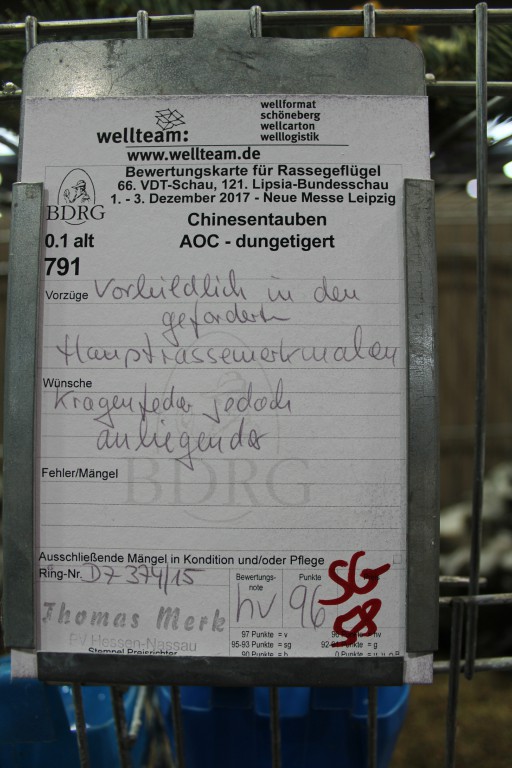 wellteam:
wellformat
schöneberg
wellcarton
welllogistik
www.wellteam.de
BDRG
Bewertungskarte für Rassegeflügel
66. VDT-Schau, 121. Lipsia-Bundesschau
1. - 3. Dezember 2017 - Neue Messe Leipzig
Chinesentauben
0.1 alt AOC - dungetigert
791
Vorzüge Vorbildlich in den
geforderten
Hauptrassemerkmalen
Wünsche
Kragenfeder jedoch
anliegender
BDRG
Fehler/Mängel
Ausschließende Mängel in Kondition und/oder Pflege
Ring-Nr. DZ 374/15
Bewertungs-
note
hv
Punkte
96
SG
58
Thomas Merk
PV Hessen-Nassau
Stempel Preisrichter
97 Punkte = v
95-93 Punkte = sg
90 Punkte = b